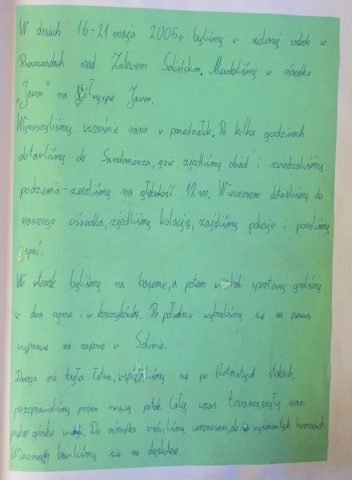 W dniach 16-21 maja 2005r byliśmy w zielonej szkole w
Bieszczadach nad Zalewem Solińskim. Mieszkaliśmy w ośrodku
„Jawor" na wyspie Jawor.
Wyruszyliśmy wcześnie rano w poniedziałek. Po kilku godzinach
dotarliśmy do Sandomierza, gdzie zjedliśmy obiad i zwiedzaliśmy
podziemia - zeszliśmy na głębokość 12 m. Wieczorem dotarliśmy do
naszego ośrodka, zjedliśmy kolację, zajęliśmy pokoje i poszliśmy
spać.
We wtorek byliśmy na basenie, a potem w hali sportowej graliśmy
w dwa ognie i w koszykówkę. Po południu wybraliśmy się na pieszą
wyprawę na zaporę w Solinie.
Droga nie była łatwa, wspinaliśmy się po błotnistych stokach,
przeprawialiśmy przez rwący potok. Cały czas towarzyszyły nam
piękne górskie widoki. Do ośrodka wróciliśmy umorusani, ale w wyśmienitych humorach.
Wieczorem bawiliśmy się na dyskotece.